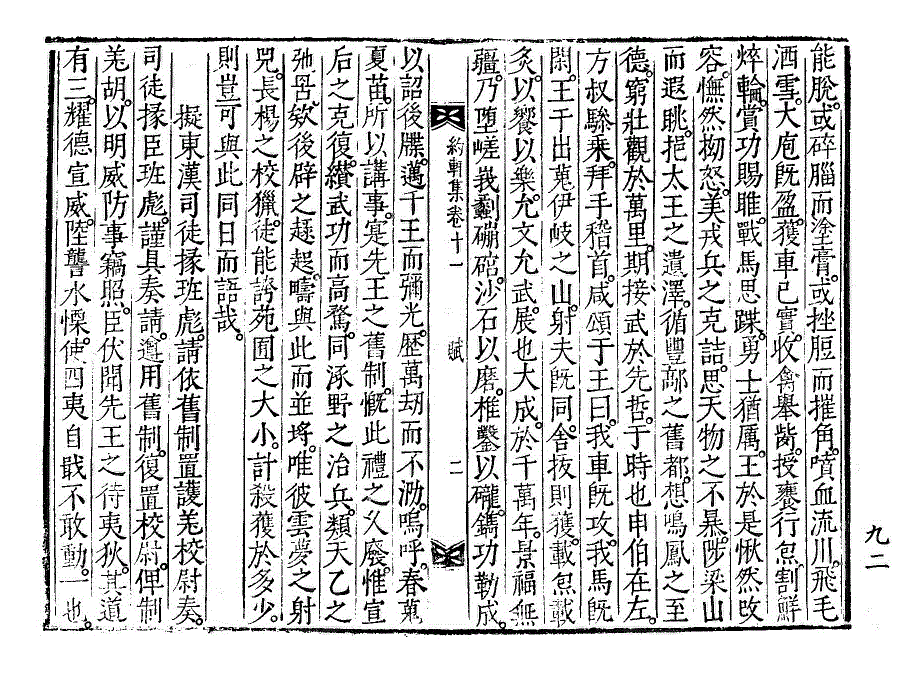 能脫。或碎腦而塗膏。或挫脰而摧角。噴血流川。飛毛
洒雪。大庖旣盈。獲車已實。收禽擧胔。授饔行炰。割鮮
焠輪。賞功賜雎。戰馬思蹀。勇士猶厲。王於是愀然改
容。憮然抑怒。美戎兵之克詰。思天物之不暴。陟梁山
而遐眺。挹太王之遺澤。循豐鄗之舊都。想鳴鳳之至
德。窮壯觀於萬里。期接武於先哲。于時也申伯在左。
方叔驂乘。拜手稽首。咸頌于王曰。我車旣攻。我馬旣
閑。王于出蒐伊岐之山。射夫旣同。舍拔則獲。載炰載
炙。以饗以樂。允文允武。展也大成。於千萬年。景福無
疆。乃墮嵯峩劚磞硿。沙石以磨。椎鑿以礲。鐫功勒成
約軒集卷十一 賦 二
以詔後牒。邁千王而彌光。歷萬劫而不泐。嗚呼。春蒐
夏苗。所以講事。寔先王之舊制。慨此禮之久廢。惟宣
后之克復。纘武功而高騖。同涿野之治兵。類天乙之
弛罟。欸後辟之趢起。疇與此而並埓。唯彼雲夢之射
兕。長楊之校獵。徒能誇苑囿之大小。計殺獲於多少。
則豈可與此同日而語哉。
擬東漢司徒掾班彪。請依舊制置護羌校尉奏。
司徒掾臣班彪。謹具奏請。遵用舊制。復置校尉。俾制
羌胡。以明威防事竊照。臣伏聞先王之待夷狄。其道
有三。耀德宣威。陸讋水慄。使四夷自戢不敢動。一也。
九二